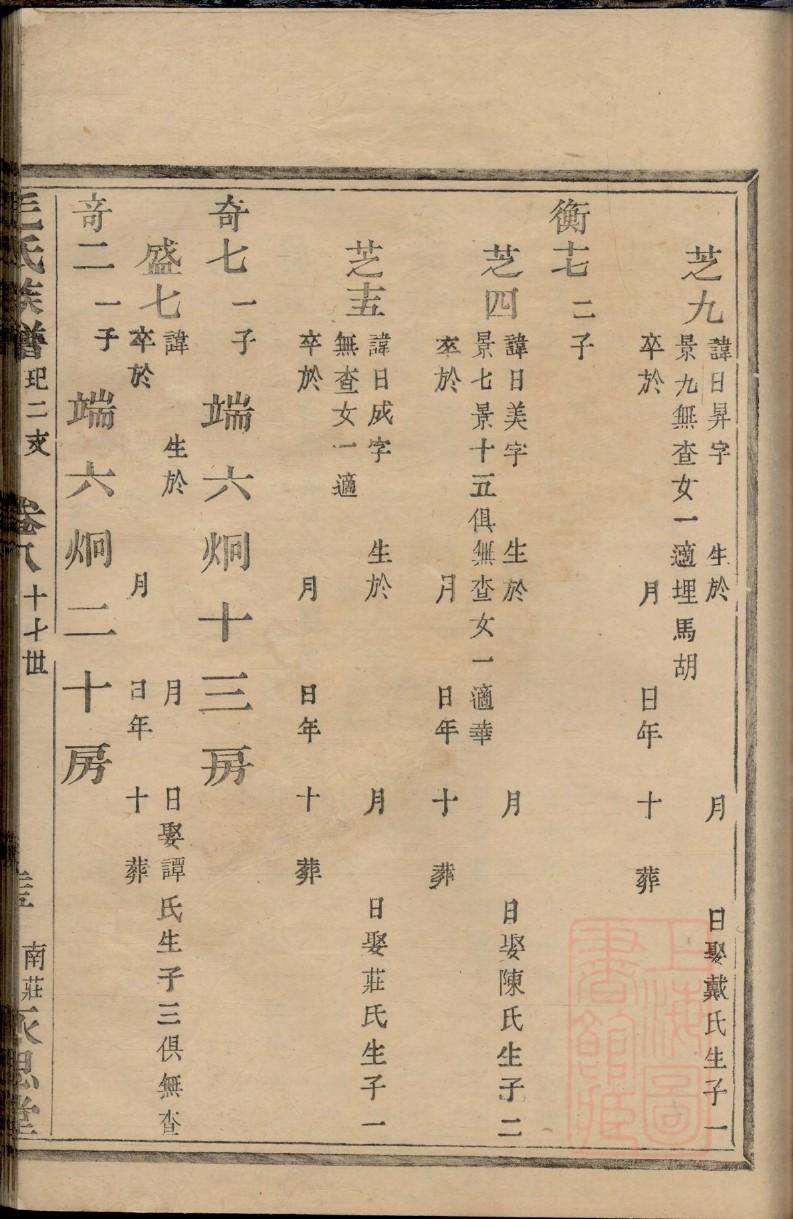 芝九
諱日昇字 生於 月 日娶戴氏生子一
景九無查女一適埋馬胡
卒於 月 日年 十 葬
衡十七 二子
芝四
諱日美字 生於 月 日娶陳氏生子二
景七景十五俱無查女一適幸
卒於 月 日年 十 葬
芝十五
諱日成字 生於 月 日娶莊氏生子一
無查女一適
卒於 月 日年 十 葬
奇七 一子 端六炯十三房
盛七
諱 生於 月 日娶譚氏生子三俱無查
卒於 月 日年 十 葬
奇二 一子 端六炯二十房
毛氏族譜 玘二支 卷八 十七世 南莊永思堂
上海圖
書館藏